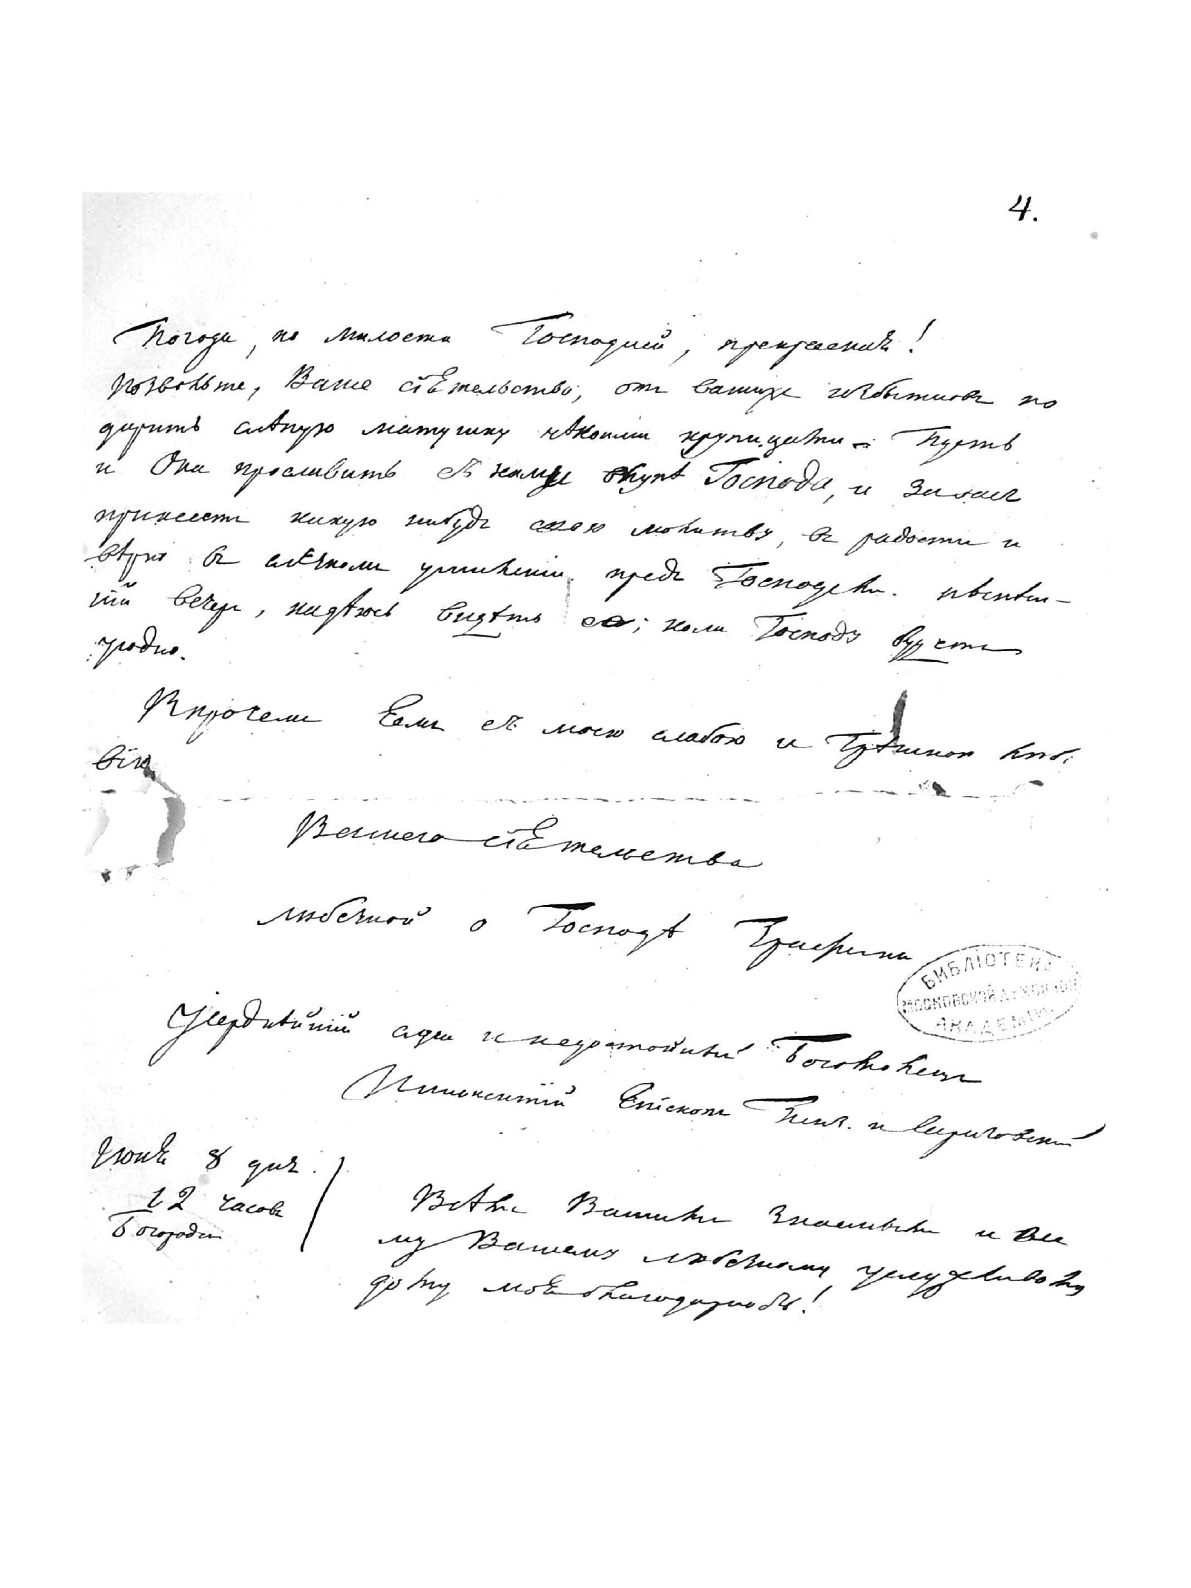 4.
Погода, по милости Господней, прекрасная!
Позвольте, Ваше Сіѣтельство, отъ вашихъ избытковъ по
дарить слѣпую матушку нѣкоими крупицами. Пусть
и Она прославитъ съ нами Господа, и за насъ
принесетъ какую нибудь свою молитву, въ радости и
предъ Господемъ.
вечеръ, надѣюсь видѣть ее; коли Господу будетъ
угодно.
Впрочемъ Есмь съ моею слабою и Грѣшною
вію
Вашего Сіѣтельства
любезной о Господѣ Графини
Усерднѣйшій слуга и недостойный Богомолецъ
Иннокентій Епископъ Пенз. и Саратовскій
Іюня 8 дня.
12 часовъ
Всѣмъ Вашимъ Знаемымъ и все
му Вашему любезному услужливому
дому мое благодареніе!
БИБЛІОТЕКА
МОСКОВСКОЙ ДУХОВНОЙ
АКАДЕМІИ